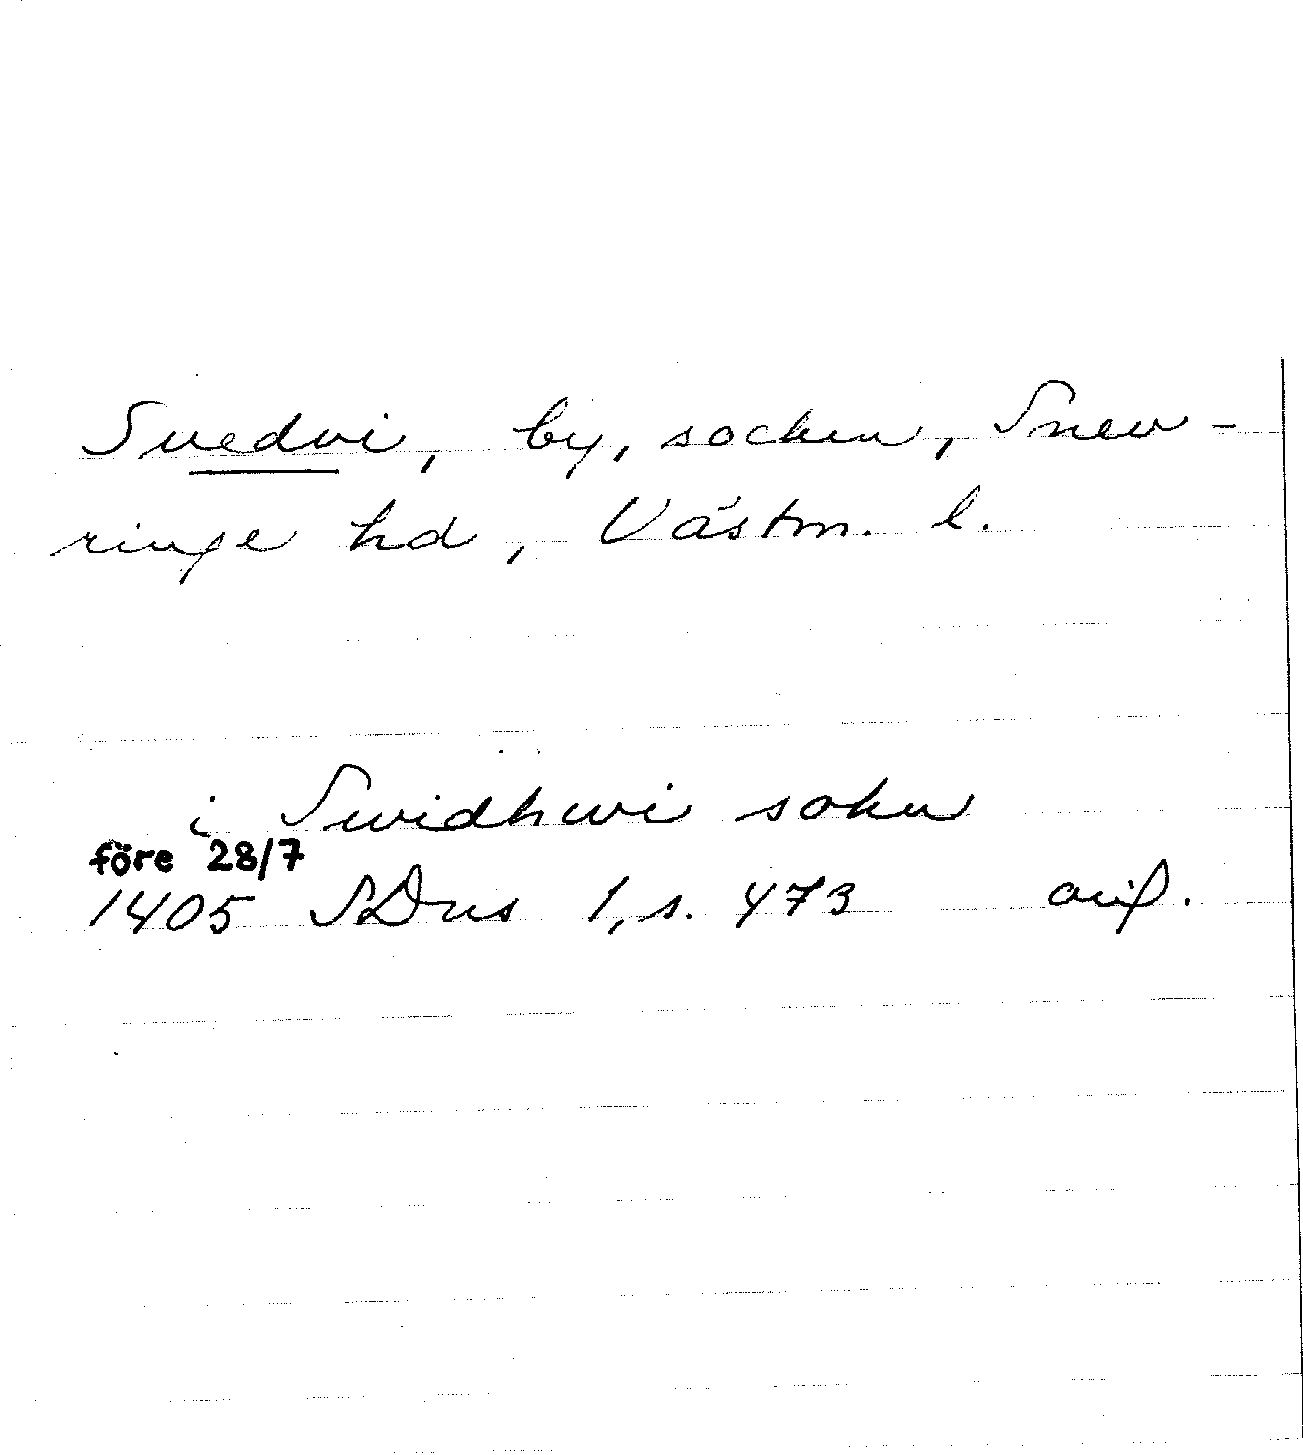 Svedvi, by, socken, Snev-
ringe hd, Västm. l.
i Swidhwi sokn
före 28/7
1405 SDns 1, s. 473 orig.